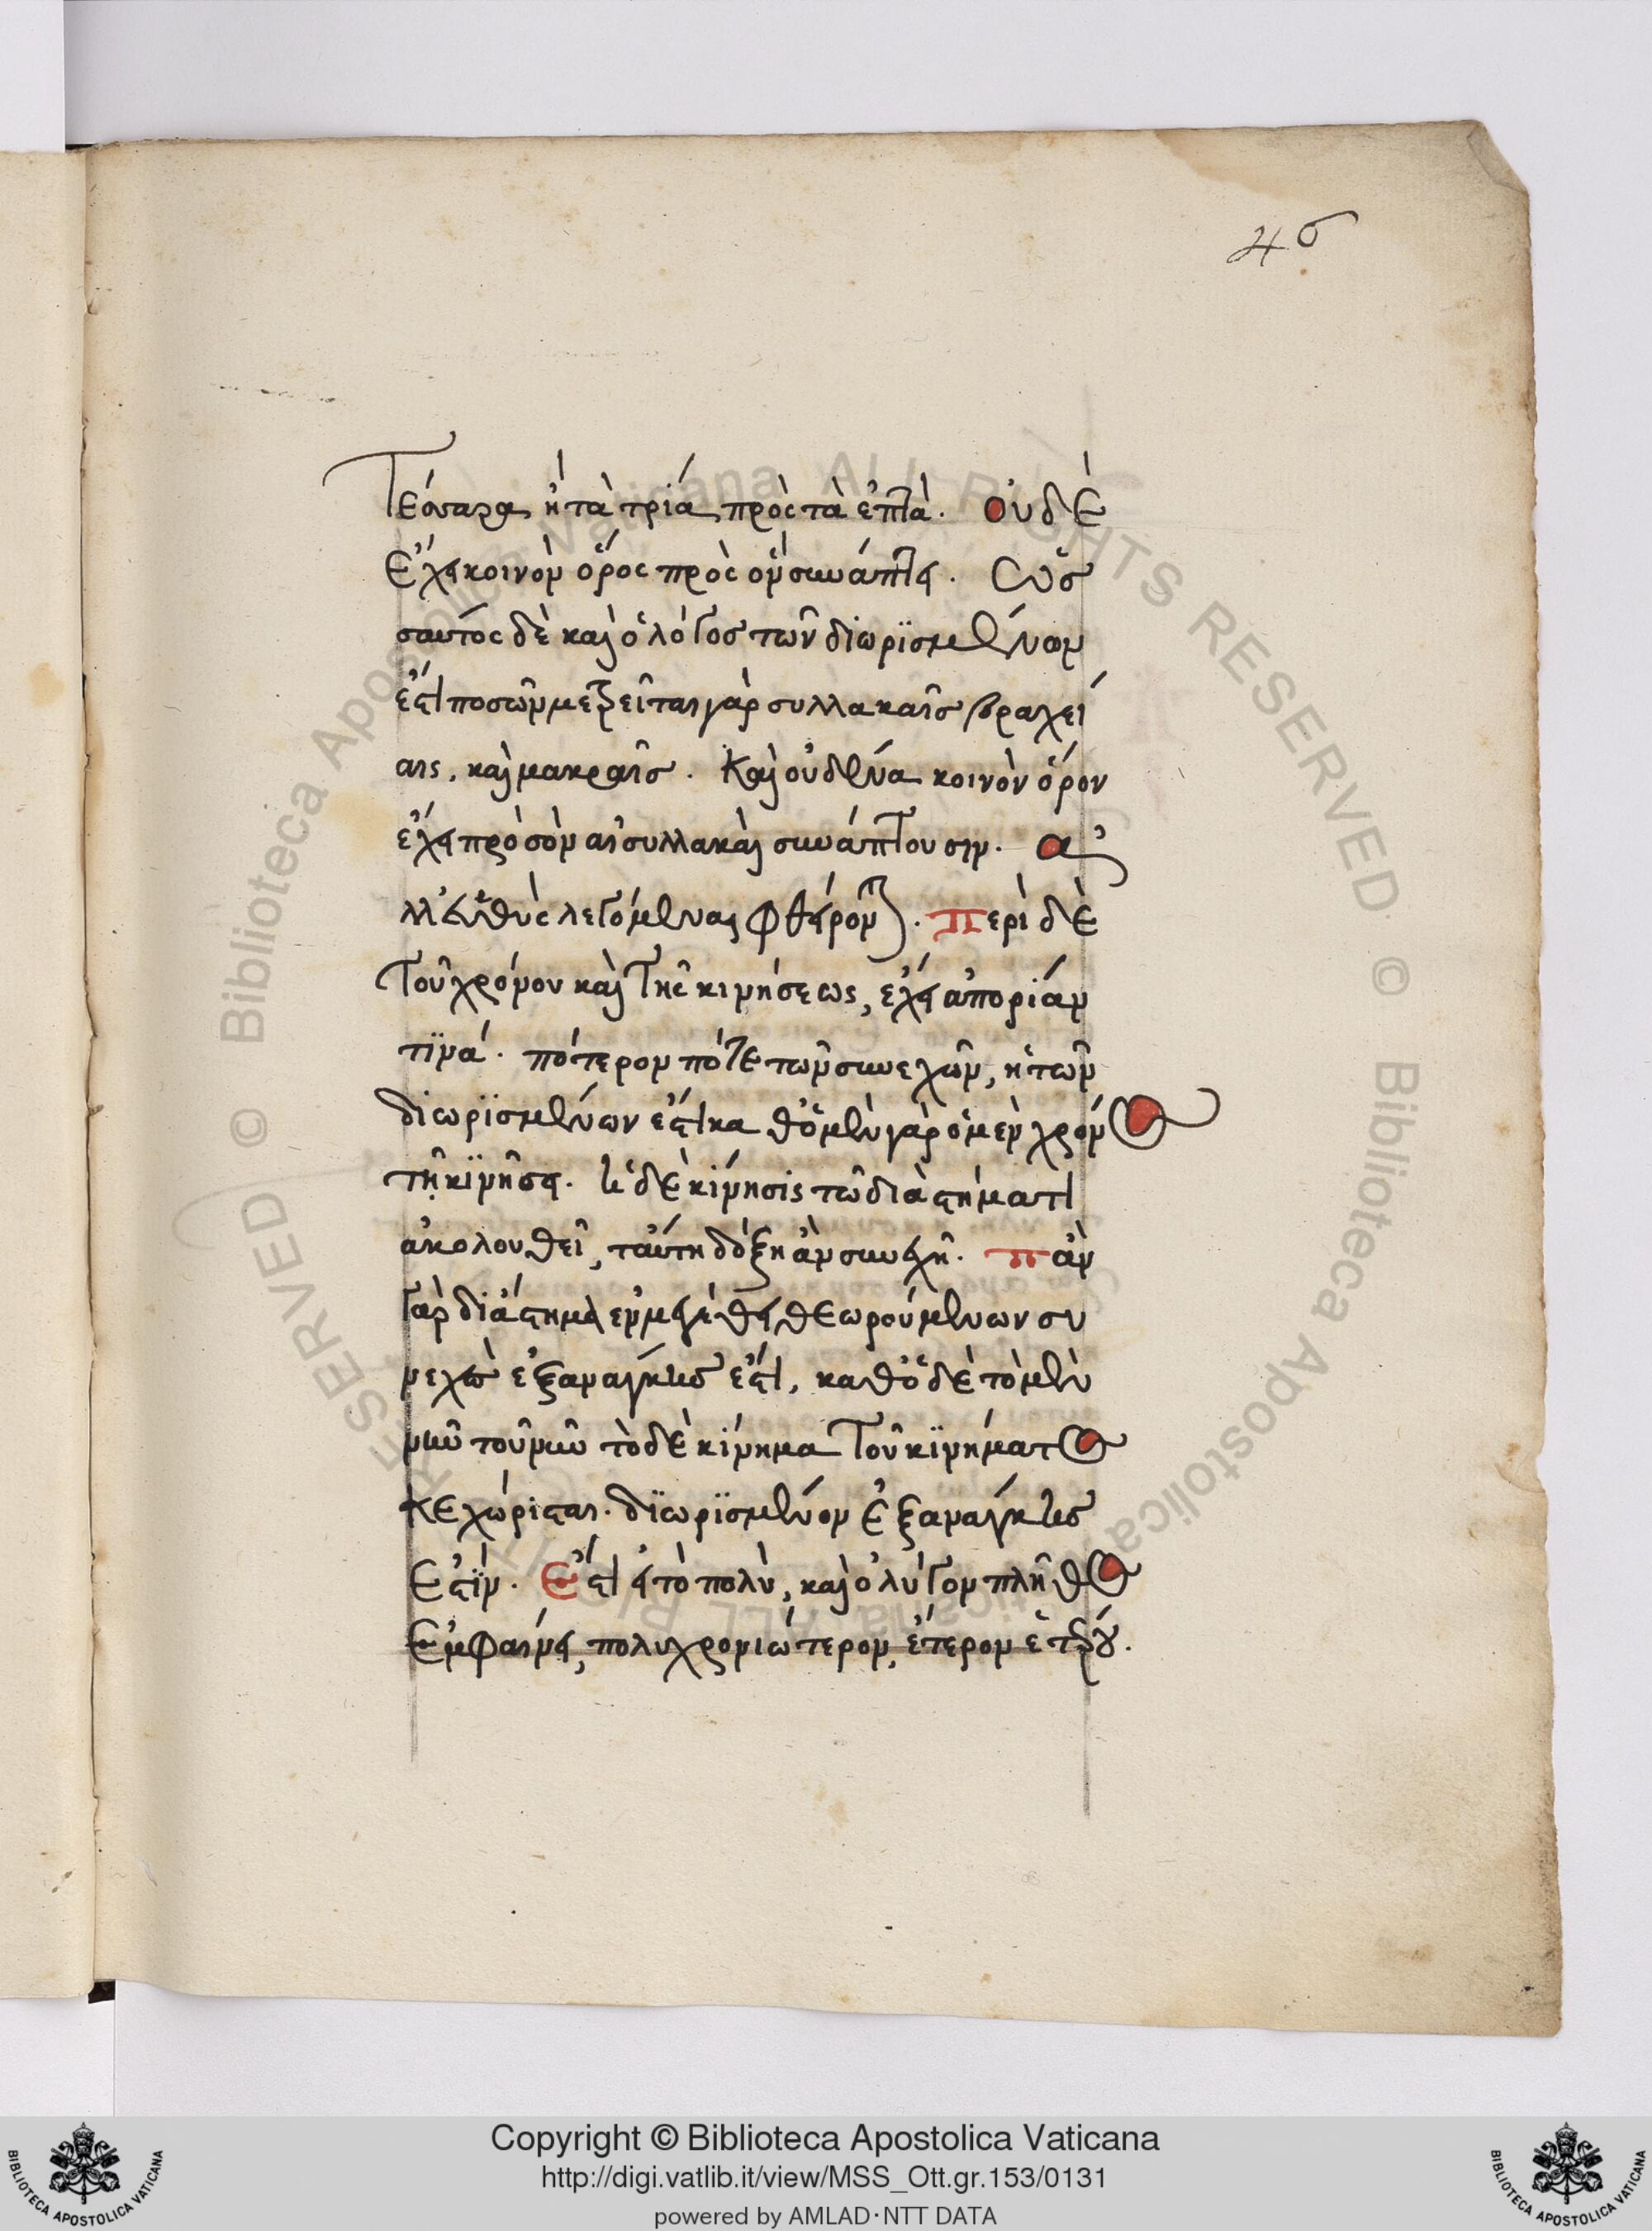 46
τέσσαρα ἢ τὰ τρία πρὸς τὰ ἑπτὰ. οὐδὲ
ἔχει κοινὸν ὅρος πρὸς ὃν συνάπτει. ὡς
σαυτός δὲ καὶ ὁ λόγος τῶν διωρϊσμένων
ἐστὶ ποσῶν μετρεῖται γὰρ συλλακαῖς βραχεί
αις, καὶ μακραῖς. Καὶ οὐδένα κοινὸν ὅρον
ἔχει πρὸς ὃν αἱ συλλακαὶ συνάπτουσιν. ἀ
λλ' εὐθὺς λεγόμεναι φθείρονται. Περὶ δὲ
τοῦ χρόνου καὶ τῆς κινήσεως, ἔχει ἀπορίαν
τϊνά. πότερον πότε τῶν συνεχῶν, ἢ τῶν
διωρϊσμένων ἐστὶ καθὸ μὲν γὰρ ὁ μὲν χρόνος
τῇ κϊνῆσει. ἡ δὲ κίνησις τῶ διαστήματι
ἀκολουθεῖ, ταύτη δόξη ἂν συνεχῆ. πὰν
γὰρ διάστημα ἐν μεγέθει θεωρούμενων συ
νεχὼ ἐξαναγκης ἐστὶ, καθὸ δὲ τὸ μὲν
νῦν τοῦ νῦν τὸ δὲ κίνημα τοῦ κϊνήματος
κεχώρισται. δϊωρϊσμένον ἐξαναγκης
ἐστϊν. ἔστι εἰ τὸ πολὺ, καὶ ὀλύγον πλῆθος
ἐμφαίνει, πολυχρονιώτερον, ἕτερον ἑτέρου.
Copyright © Biblioteca Apostolica Vaticana
http://digi.vatlib.it/view/MSS_Ott.gr.153/0131
powered by AMLAD·NTT DATA